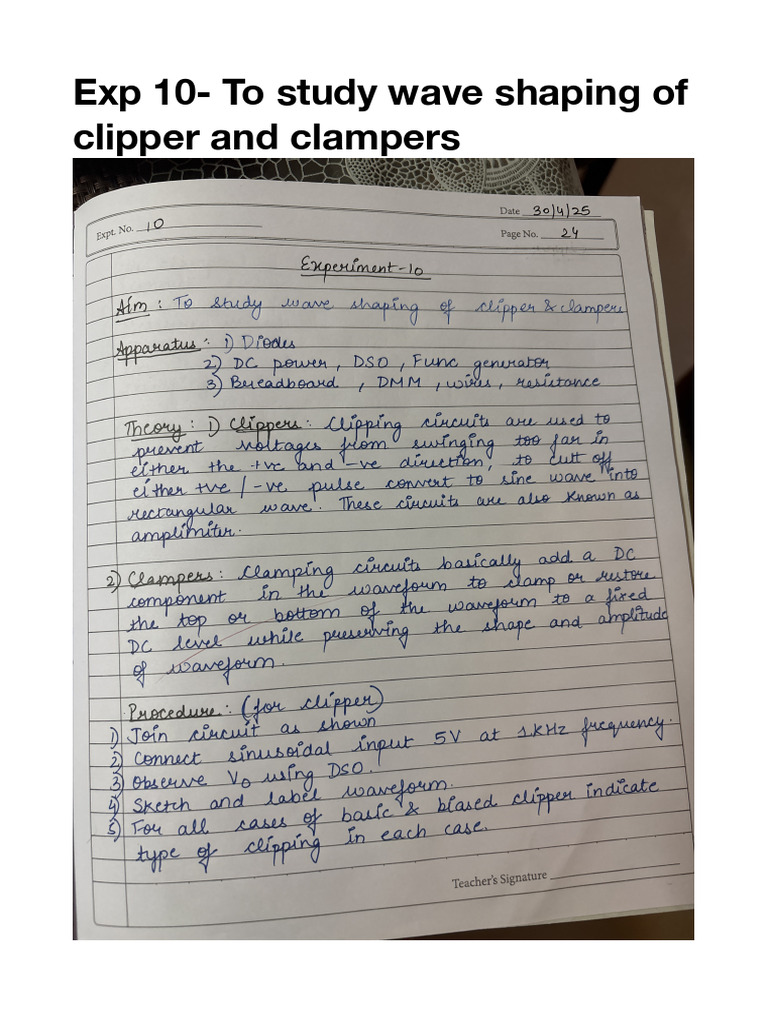 Exp 10- To study wave shaping of
clipper and clampers
Date 30/4/25
Expt. No. 10
Page No. 24
Experiment-10
Aim : To study wave shaping of clipper & clampers
Apparatus : 1) Diodes
2) DC power, DSO, Func generator
3) Breadboard, DMM, wires, resistance
Theory : 1) Clippers : Clipping circuits are used to
prevent voltages from swinging too far in
either the +ve and -ve direction, to cutt off
either +ve / -ve pulse convert to sine wave into
rectangular wave. These circuits are also known as
amplimiter.
2) Clampers : Clamping circuits basically add a DC
component in the waveform to clamp or restore
the top or bottom of the waveform to a fixed
DC level while preserving the shape and amplitude
of waveform.
Procedure : (for clipper)
1) Join circuit as shown
2) Connect sinusoidal input 5V at 1KHz frequency.
3) Observe Vo using DSO.
4) Sketch and label waveform.
5) For all cases of basic & biased clipper indicate
type of clipping in each case.
Teacher's Signature